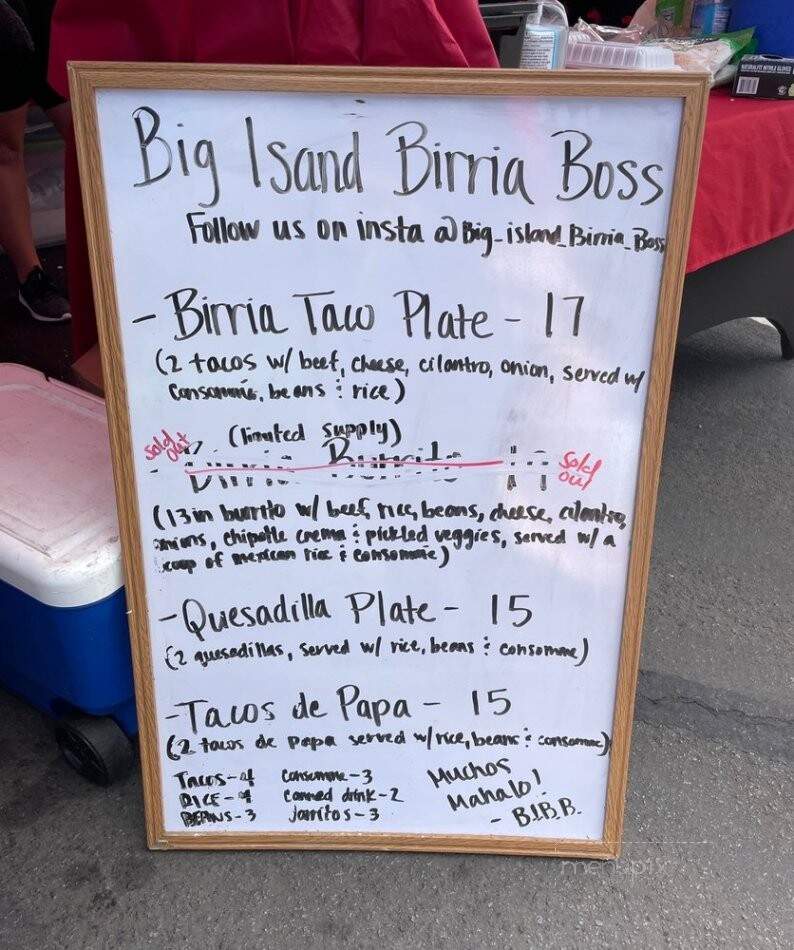 Big Isand Birria Boss
Follow us on insta @Big_island_Birria_Boss
- Birria Taco Plate - 17
(2 tacos w/ beef, cheese, cilantro, onion, served w/
consommé, beans & rice)
sold out (limited supply)
- Birria Burrito 19 Sold out
(13in burrito w/ beef, rice, beans, cheese, cilantro,
onions, chipotle crema & pickled veggies, served w/ a
scoop of mexican rice & consomme)
- Quesadilla Plate - 15
(2 quesadillas, served w/ rice, beans & consomme)
- Tacos de Papa - 15
(2 tacos de papa served w/ rice, beans & consomme)
Tacos - 4 Consomme - 3 Muchos
RICE - 4 Canned drink - 2 Mahalo!
BEANS - 3 Jarritos - 3 - B.I.B.B.
menupix